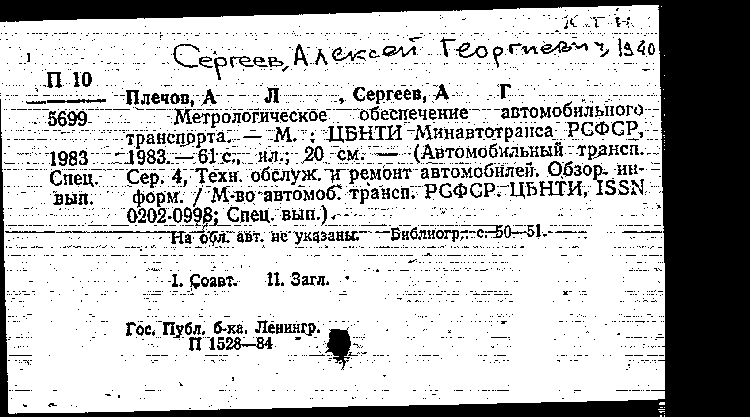 К. Т. Н.
Сергеев, Алексей Георгиевич, 1940
П 10
Плечов, А Л , Сергеев, А Г
5699 Метрологическое обеспечение автомобильного
транспорта. — М. : ЦБНТИ Минавтотранса РСФСР,
1983 1983. — 61 с., ил.; 20 см. — (Автомобильный трансп.
Спец. Сер. 4, Техн. обслуж. и ремонт автомобилей. Обзор. ин-
вып. форм. / М-во автомоб. трансп. РСФСР. ЦБНТИ, ISSN
0202-0998; Спец. вып.).
На обл. авт. не указаны. Библиогр.: с. 50—51.
I. Соавт. II. Загл.
Гос. Публ. б-ка. Ленингр.
П 1528—84